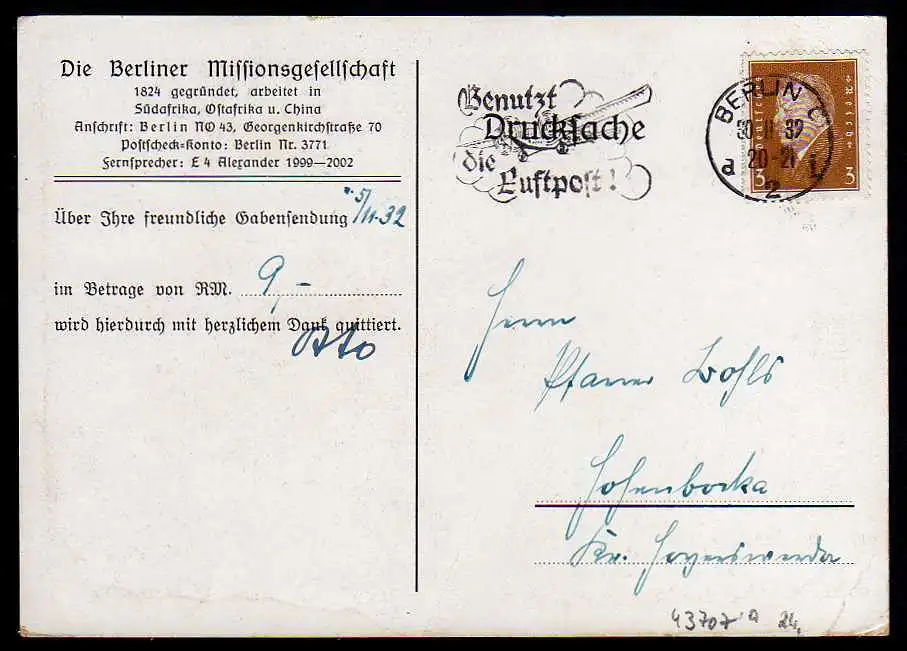 Die Berliner Missionsgesellschaft
1824 gegründet, arbeitet in
Südafrika, Ostafrika u. China
Anschrift: Berlin NO 43, Georgenkirchstraße 70
Postscheck-Konto: Berlin Nr. 3771
Fernsprecher: E 4 Alexander 1999–2002
Über Ihre freundliche Gabensendung 5/11.32
im Betrage von RM. 9,–
wird hierdurch mit herzlichem Dank quittiert.
Benutzt
Drucksache
die
Luftpost!
BERLIN C
30.11.32 20-21
a 2 i
3 3
Herrn
Pfarrer Wohls
Hohenbocka
Kr. Hoyerswerda
43707 a 24,